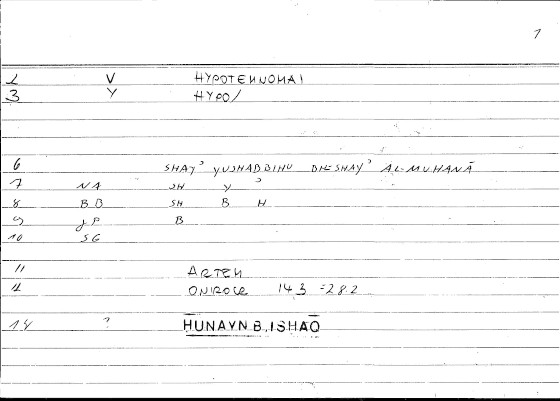 1
2 V HYPOTEMNOMAI
3 Y HYPO/
6 SHAYʾ YUSHADDIHU BI-SHAYʾ AL-MUHANĀ
7 NA SH Y ʾ
8 BB SH B H
9 JP B
10 SG
11 ARTEM
12 ONIROCR 143 = 282
14 ? HUNAYN B. ISHAQ